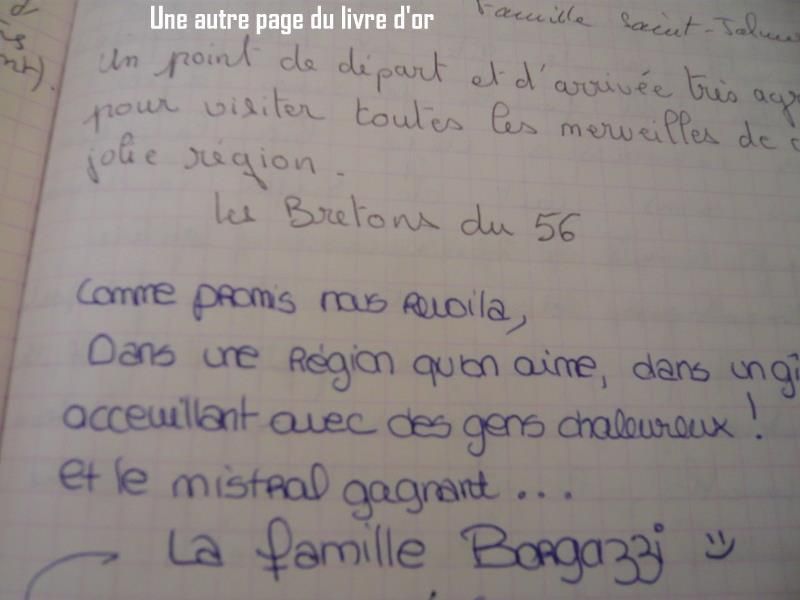 Une autre page du livre d'or
Famille Saint-Jalmes
Un point de départ et d'arrivée très agr
pour visiter toutes les merveilles de c
jolie région.
Les Bretons du 56
Comme promis nous revoila,
Dans une Région qu'on aime, dans un gî
acceuillant avec des gens chaleureux !
et le mistral gagnant ...
La famille Borgazzi